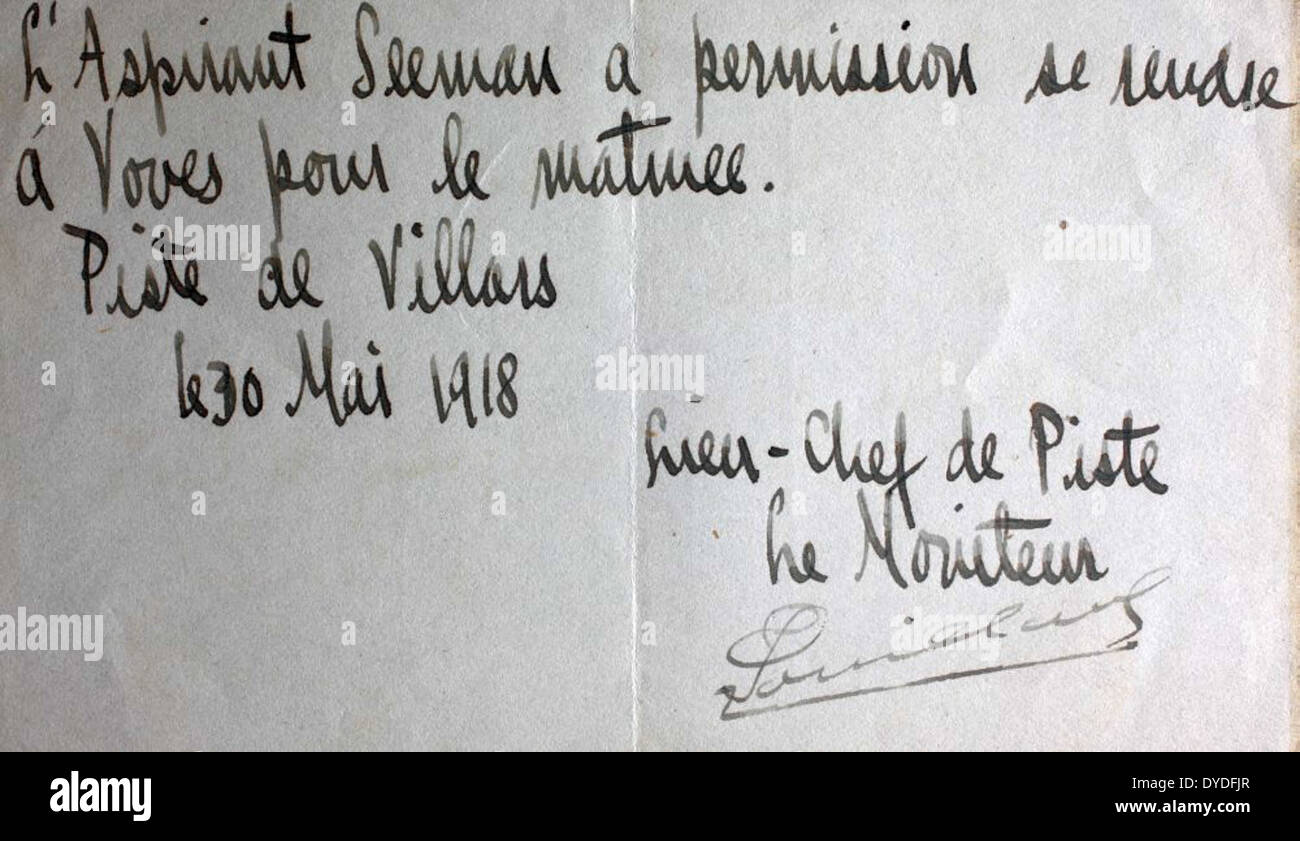 L'Aspirant Seeman a permission se rendre
à Voves pour le matinee.
Piste de Villars
le 30 Mai 1918
Lieu-Chef de Piste
Le Moniteur
alamy
a
alamy stock photo
DYDFJR
www.alamy.com